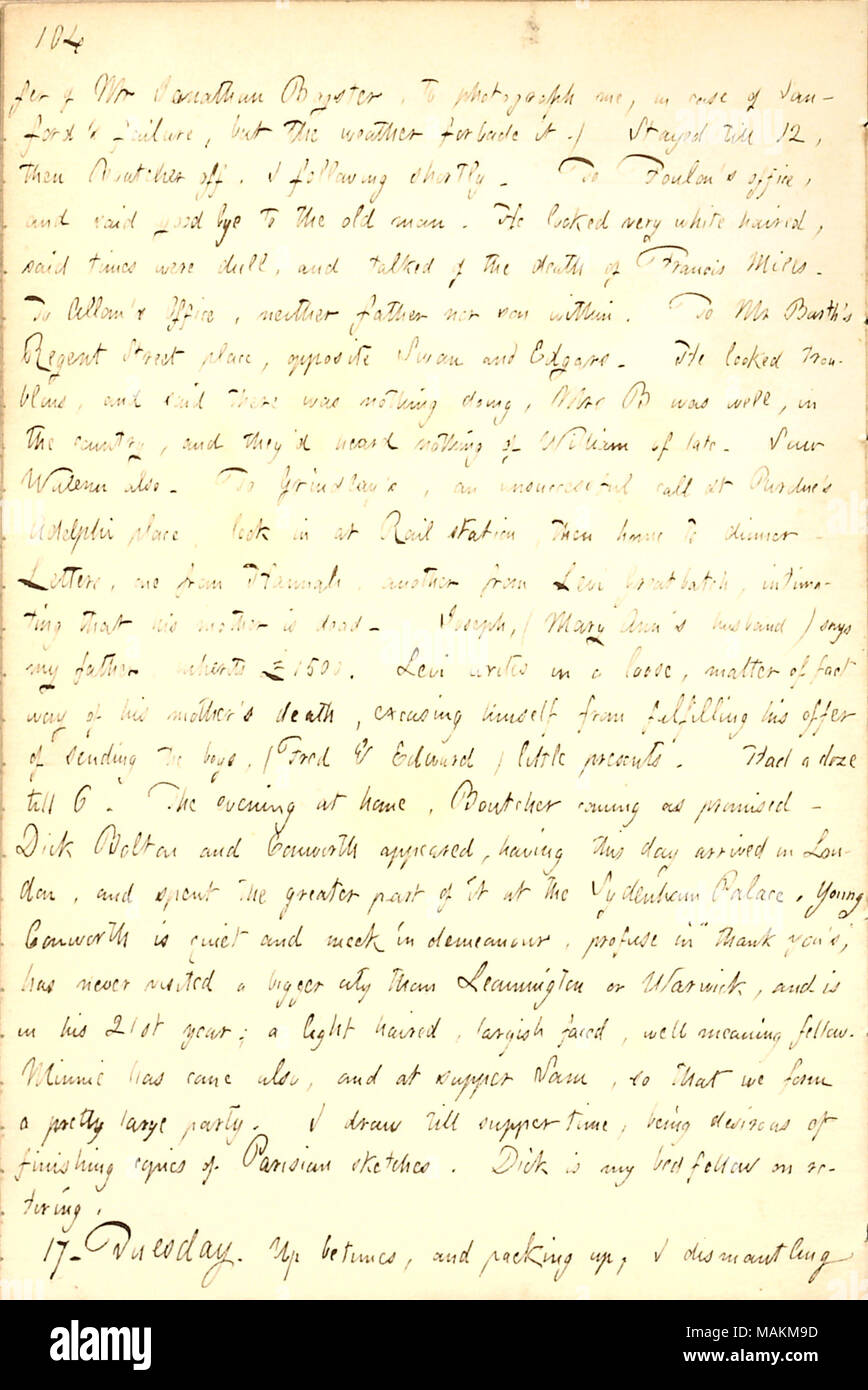 104
fer of Mr Jonathan Bagster, to photograph me, in case of San-
ford's failure, but the weather forbade it.) Stayed till 12,
then Boutcher off. I following shortly. To Foulon's office,
and said good bye to the old man. He looked very white haired,
said times were dull, and talked of the death of Francis Mills.
To Allom's Office, neither father nor son within. To Mr Barth's
Regent Street place, opposite Swan and Edgars. He looked trou-
blous, and said there was nothing doing, Mrs B was well, in
the country, and they'd heard nothing of William of late. Saw
also. To Grindlay's, an unsuccessful call at Purdue's
Adelphi place, look in at Rail station, then home to dinner.
Letters, one from Hannah, another from Levi Greatbatch, intima-
ting that his mother is dead. Joseph, (Mary Ann's husband) says
my father inherits £1500. Levi writes in a loose, matter of fact
way of his mother's death, excusing himself from fulfilling his offer
of sending the boys, (Fred & Edward) little presents. Had a doze
till 6. The evening at home, Boutcher coming as promised.
Dick Bolton and Conworth appeared, having this day arrived in Lon-
don, and spent the greater part of it at the Sydenham Palace. Young
Conworth is quiet and meek in demeanour, profuse in "thank you's",
has never visited a bigger city than Leamington or Warwick, and is
in his 21st year; a light haired, largish faced, well meaning fellow.
Minnie has come also, and at supper Sam, so that we form
a pretty large party. I draw till supper time, being desirous of
finishing copies of Parisian sketches. Dick is my bed fellow on re-
tiring.
17. Tuesday. Up betimes, and packing up, I dismantling
alamy
Image ID: MAKM9D
www.alamy.com